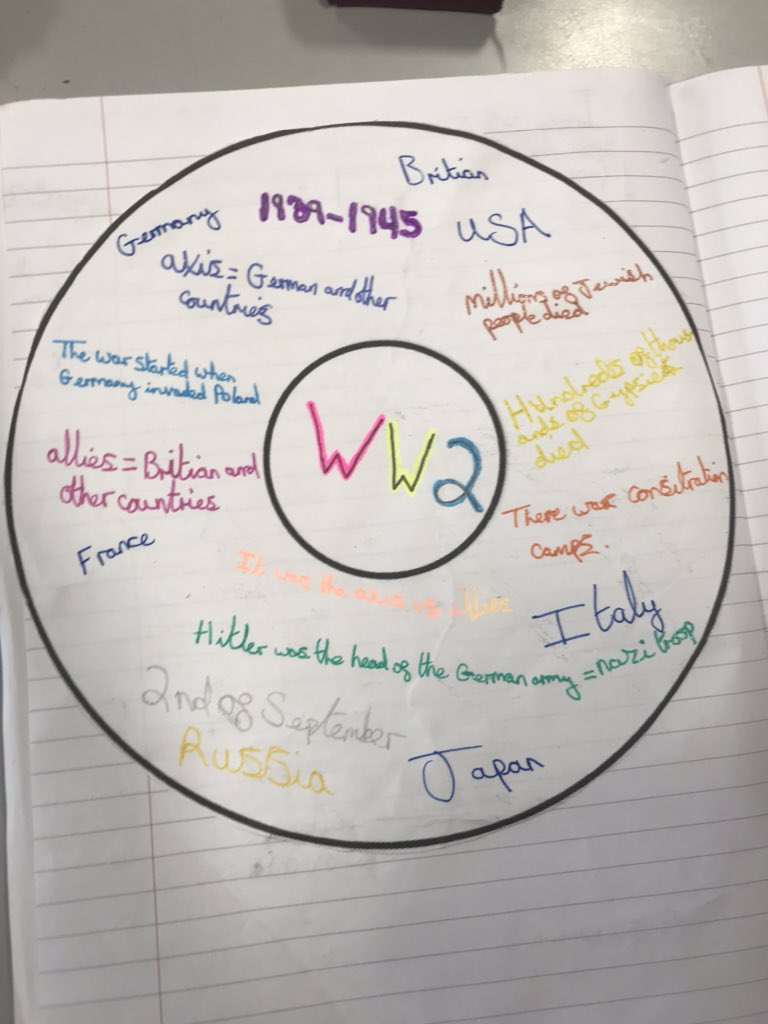 Britian
1939-1945
USA
Germany
axis = German and other
countries
millions of Jewish
people died
The war started when
Germany invaded Poland
Hundreds of thous
ands of Gypsies
died
WW2
allies = Britian and
other countries
There was consitration
camps.
France
It was the axis vs allies
Italy
Hitler was the head of the German army = nazi troop
2nd of September
Russia
Japan